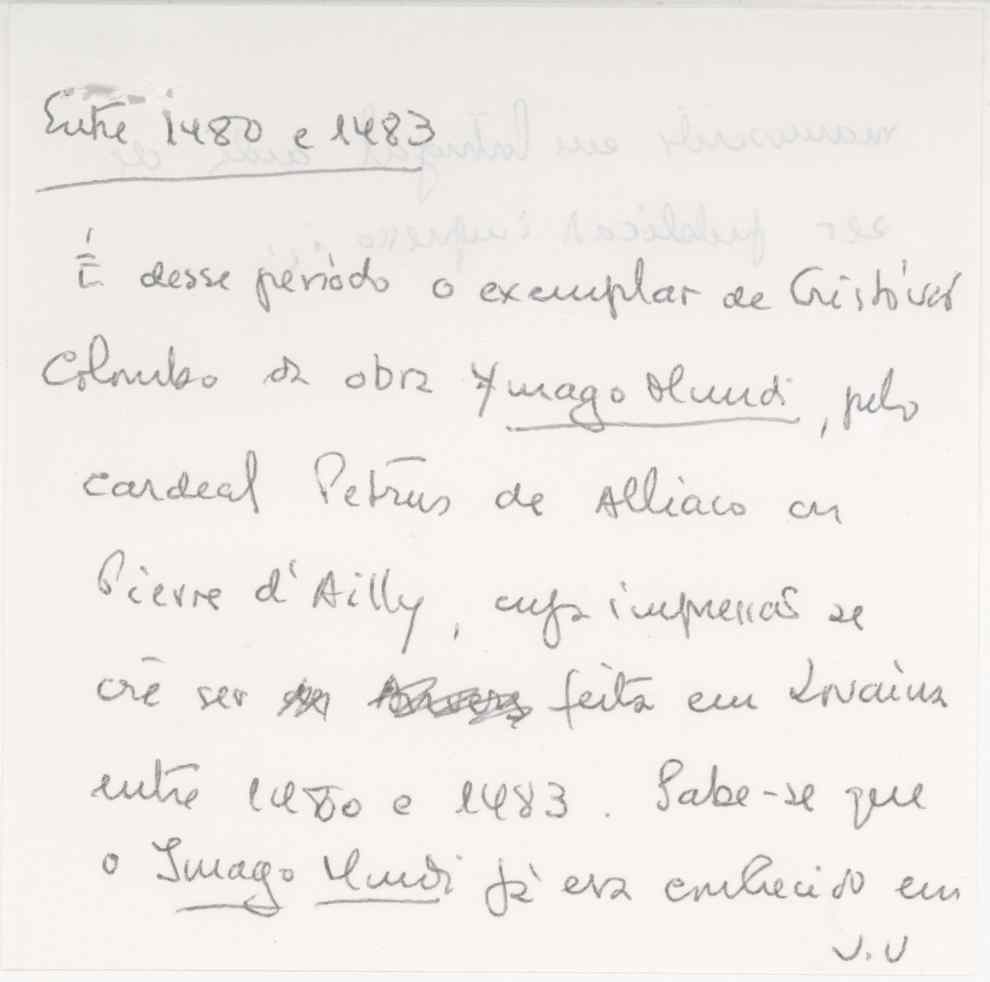 Entre 1480 e 1483
É desse período o exemplar de Cristóvão
Colombo da obra Ymago Mundi, pelo
cardeal Petrus de Alliaco ou
Pierre d'Ailly, cuja impressão se
crê ser feita em Lovaina
entre 1480 e 1483. Sabe-se que
o Imago Mundi já era conhecido em
manuscrito em antes de
ser publicado impresso